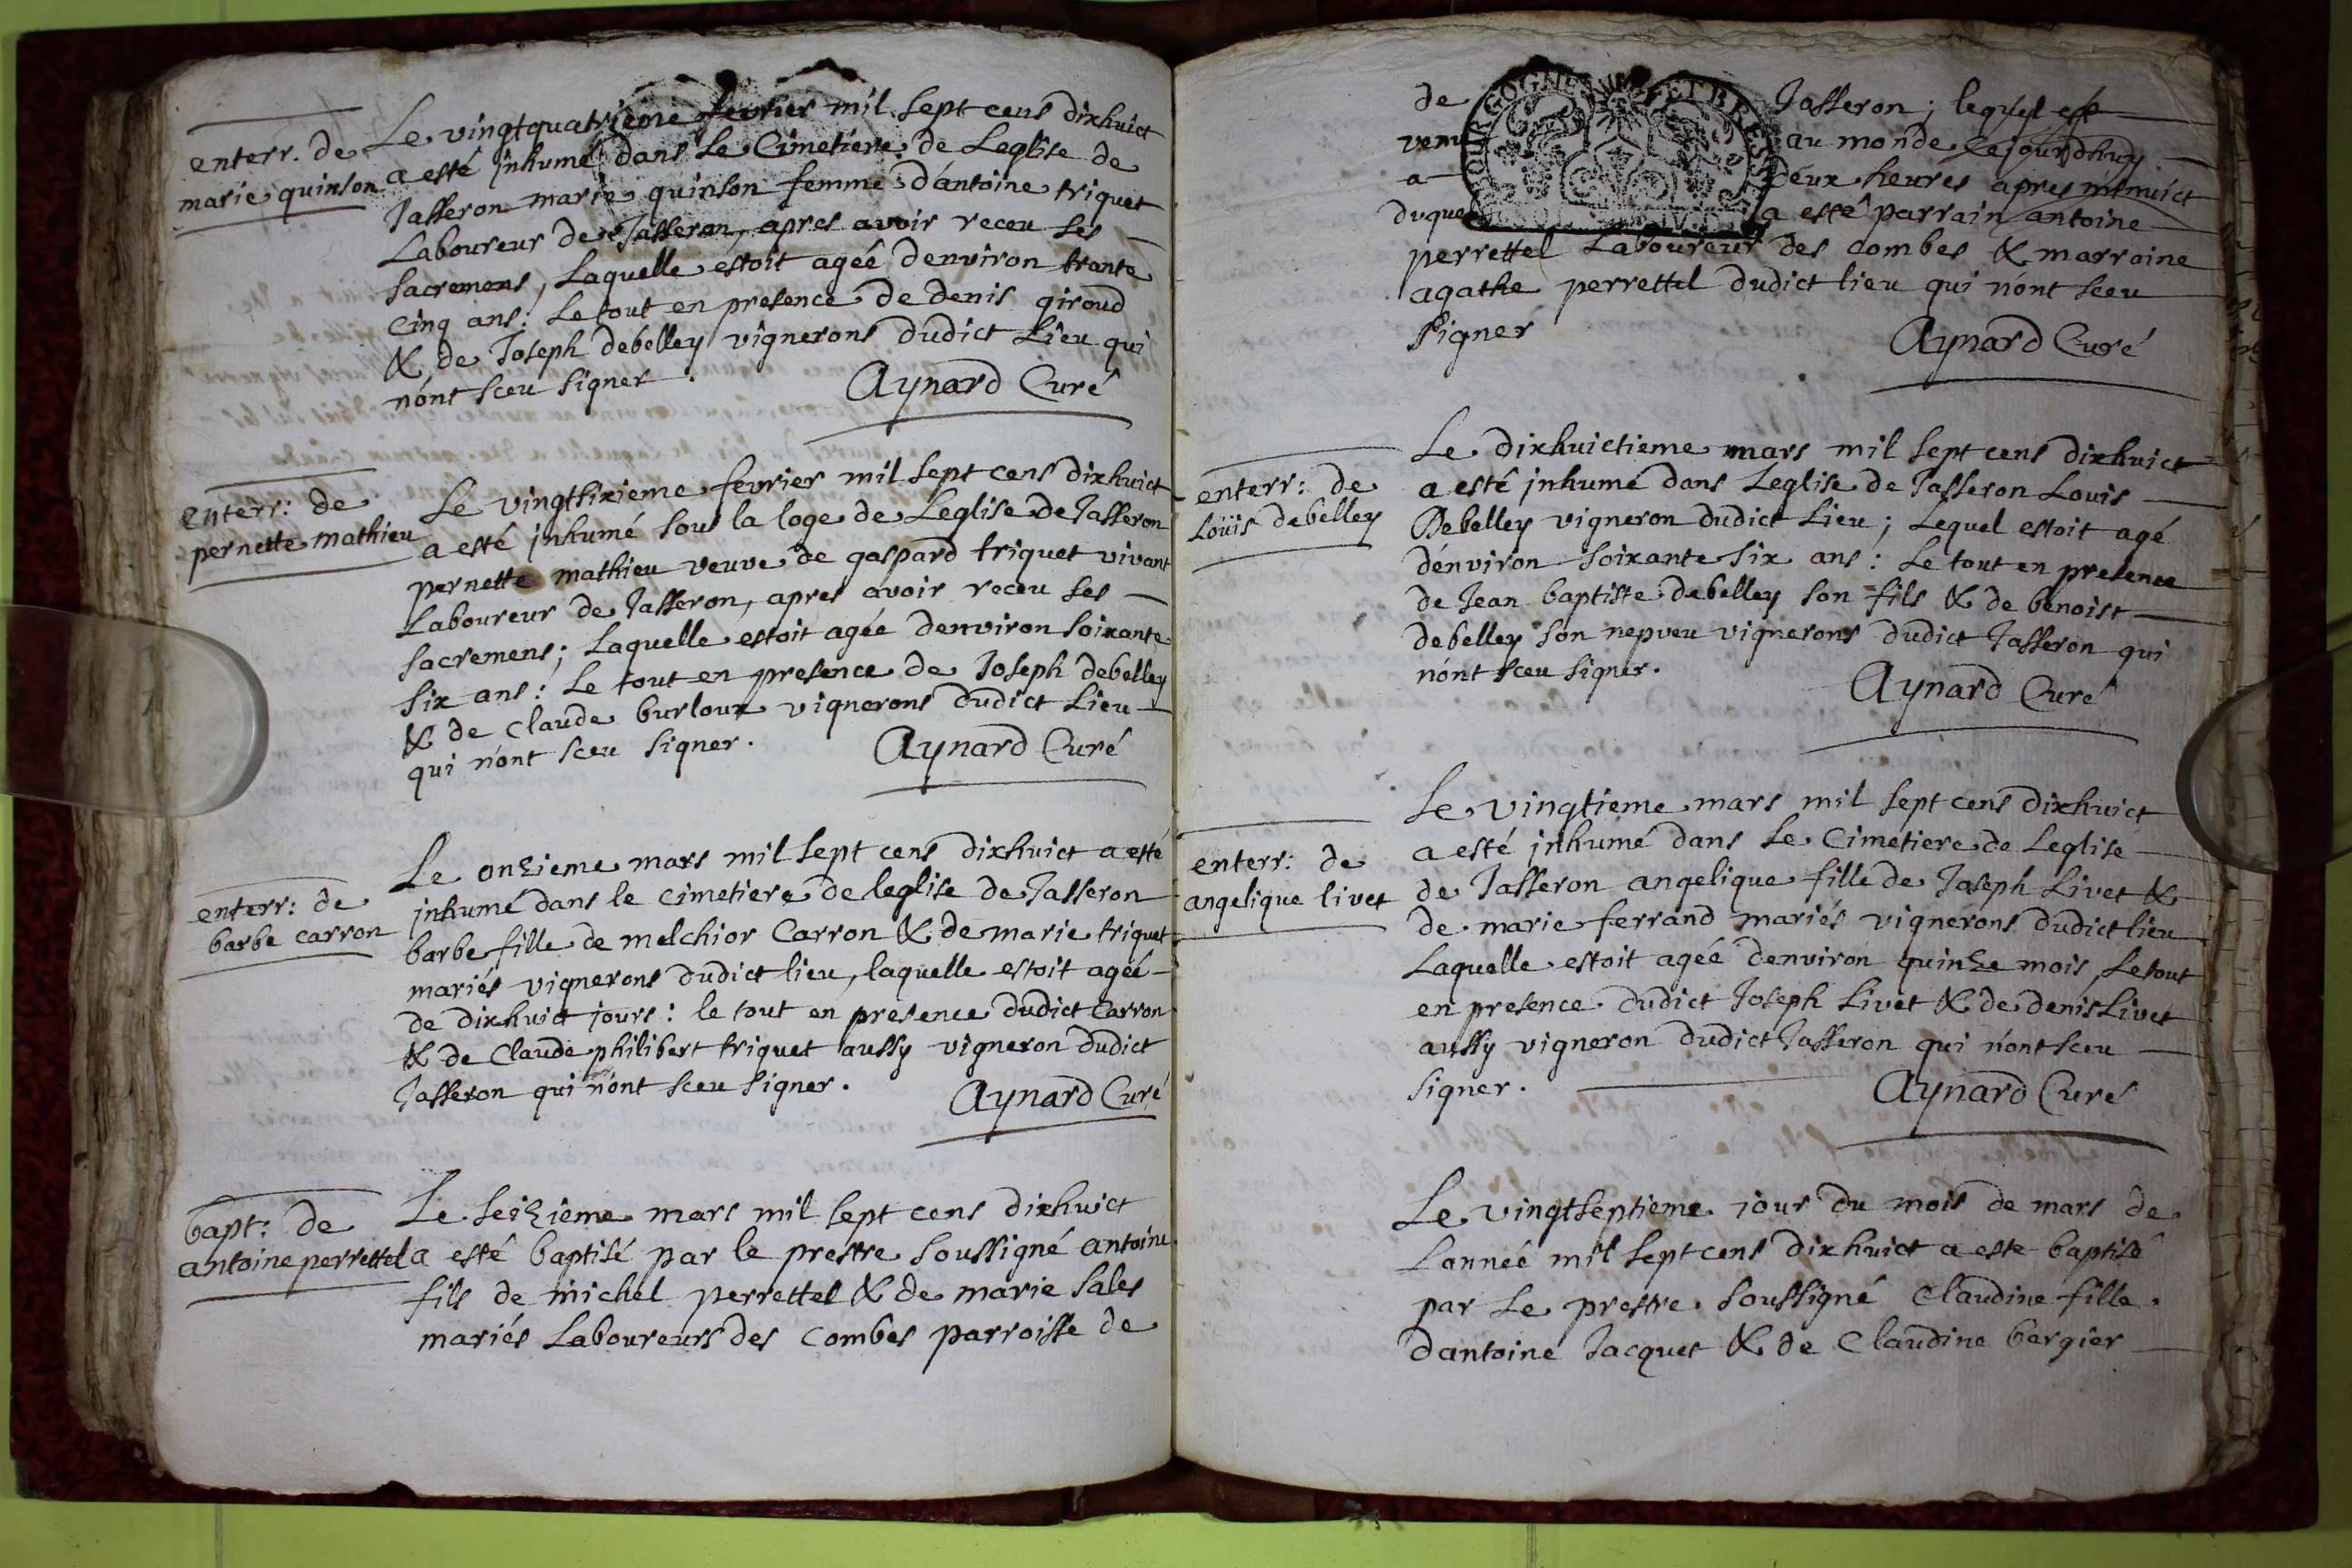 enterr. de
marie quinson
Le vingtquatrieme fevrier mil sept cens dixhuict
a esté inhumé dans Le Cimetiere de Leglise de
Jasseron marie quinson femme d'antoine triquet
Laboureur de Jasseron, apres avoir receu ses
sacremens, Laquelle estoit ageé denviron trante
cinq ans: Le tout en presence de denis giroud
& de Joseph debelley vignerons dudict Lieu qui
n'ont sceu signer.
Aynard Curé
enterr: de
pernette mathieu
Le vingtsixieme fevrier mil sept cens dixhuict
a esté inhumé sous la loge de Leglise de Jasseron
pernette mathieu veuve de gaspard triquet vivant
Laboureur de Jasseron, apres avoir receu ses
sacremens; Laquelle estoit agée denviron soixante
six ans: Le tout en presence de Joseph debelley
& de Claude burloux vignerons dudict Lieu
qui n'ont sceu signer.
Aynard Curé
enterr: de
barbe carron
Le onzieme mars mil sept cens dixhuict a esté
inhumé dans le cimetiere de leglise de Jasseron
barbe fille de melchior Carron & de marie triquet
mariés vignerons dudict lieu, laquelle estoit ageé
de dixhuict jours: le tout en presence dudict Carron
& de Claude philibert triquet aussy vigneron dudict
Jasseron qui n'ont sceu signer.
Aynard Curé
bapt: de
antoine perrettel
Le seizieme mars mil sept cens dixhuict
a esté baptisé par le prestre soussigné antoine
fils de michel perrettel & de marie sales
mariés Laboureurs des Combes parroisse de
de Jasseron; lequel est
venu au monde cejourdhuy
a deux heures apres minuict
duquel a esté parrain antoine
BOURGOGNE ET BRESSE
perrettel Laboureur des Combes & marraine
agathe perrettel dudict lieu qui n'ont sceu
signer
Aynard Curé
enterr: de
Loüis debelley
Le dixhuictieme mars mil sept cens dixhuict
a esté inhumé dans Leglise de Jasseron Louis
Debelley vigneron dudict Lieu; Lequel estoit agé
d'environ soixante six ans: Le tout en presence
de Jean baptiste debelley son fils & de benoist
debelley son nepveu vignerons dudict Jasseron qui
n'ont sceu signer.
Aynard Curé
enterr: de
angelique livet
Le vingtieme mars mil sept cens dixhuict
a esté inhumé dans Le Cimetiere de Leglise
de Jasseron angelique fille de Joseph Livet &
de marie ferrand mariés vignerons dudict lieu
Laquelle estoit ageé denviron quinze mois, Le tout
en presence dudict Joseph Livet & de denis Livet
aussy vigneron dudict Jasseron qui n'ont sceu
signer.
Aynard Curé
Le vingtseptieme jour du mois de mars de
Lanneé mil sept cens dixhuict a esté baptisé
par Le prestre soussigné Claudine fille
dantoine Jacquet & de Claudine bergier